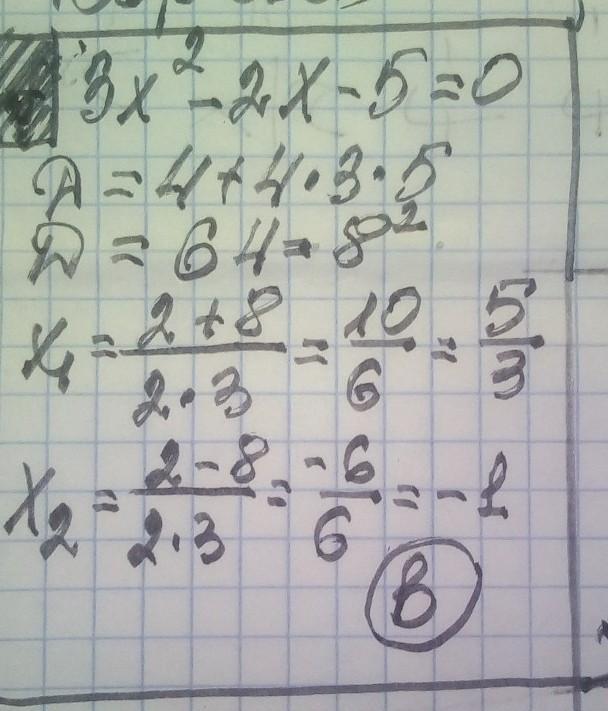 3x² - 2x - 5 = 0
D = 4 + 4·3·5
D = 64 = 8²
x₁ = (2 + 8)/(2·3) = 10/6 = 5/3
x₂ = (2 - 8)/(2·3) = -6/6 = -1
В